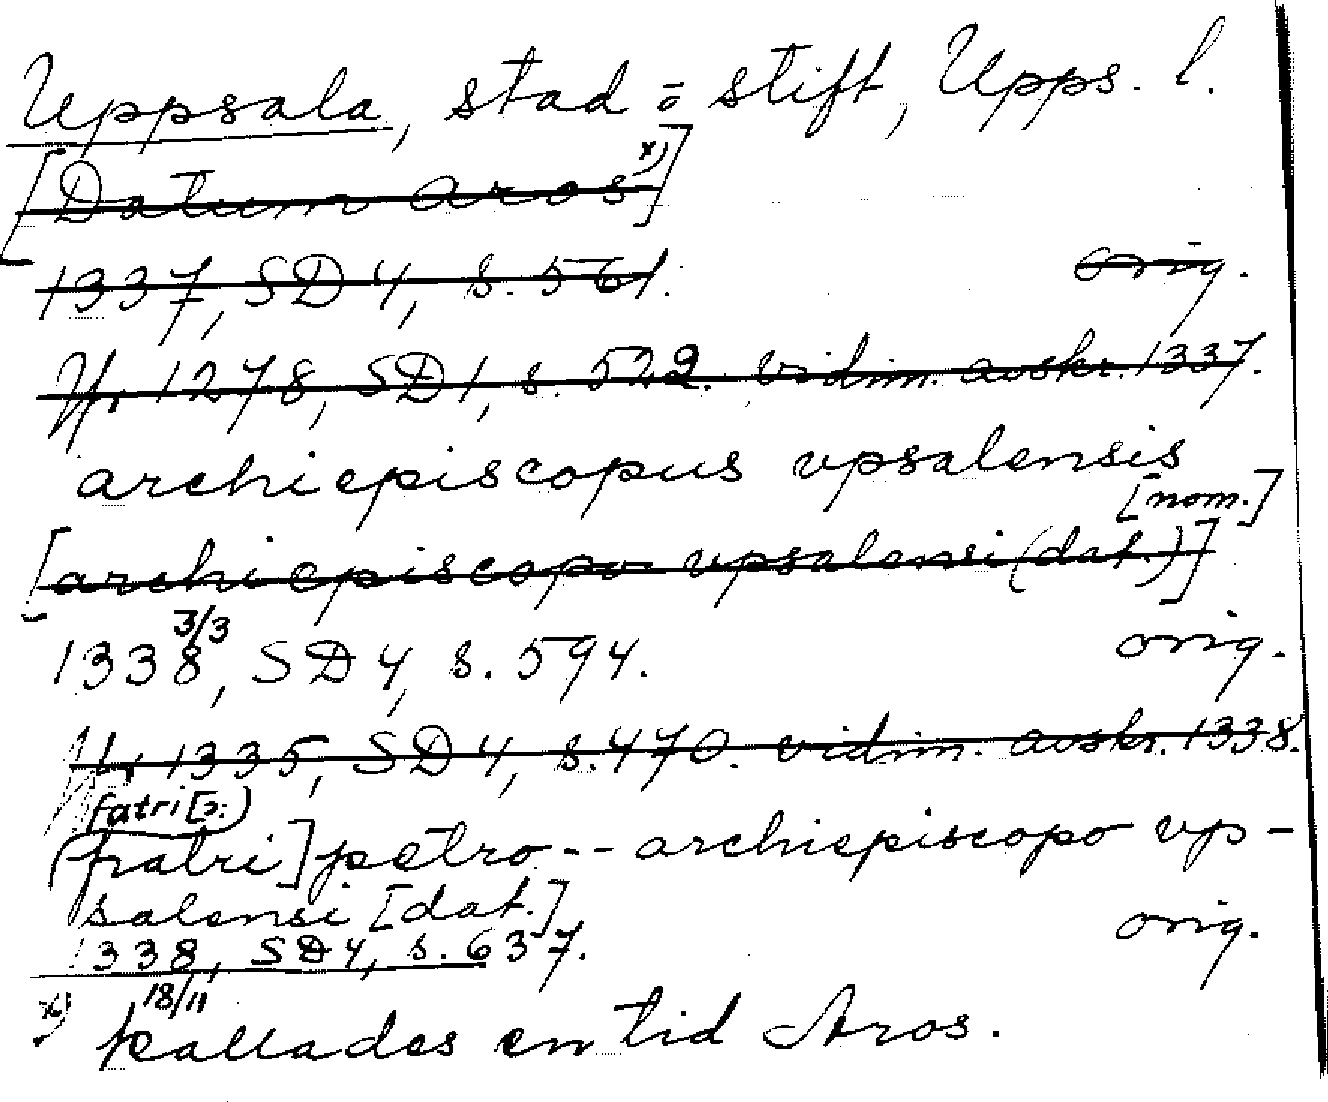 Uppsala, stad o stift, Upps. l.
[Datum Aros x)]
1337, SD 4, s. 561. orig.
U. 1278, SD 1, s. 522. vidim. avskr. 1337.
archiepiscopus vpsalensis
[nom.]
[archiepiscopo vpsalensi (dat.)]
3/3
1338, SD 4, s. 594. orig.
U. 1335, SD 4, s. 470. vidim. avskr. 1338.
fatri [ɔ:)
(fratri] petro -- archiepiscopo vp-
salensi [dat.]
1338, SD 4, s. 637. orig.
18/11
x) kallades en tid Aros.